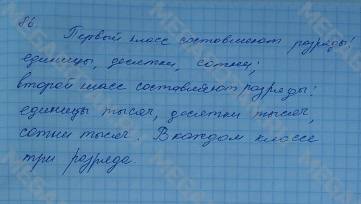 86.
Первый класс составляют разряды:
единицы, десятки, сотни;
второй класс составляют разряды:
единицы тысяч, десятки тысяч,
сотни тысяч. В каждом классе
три разряда.